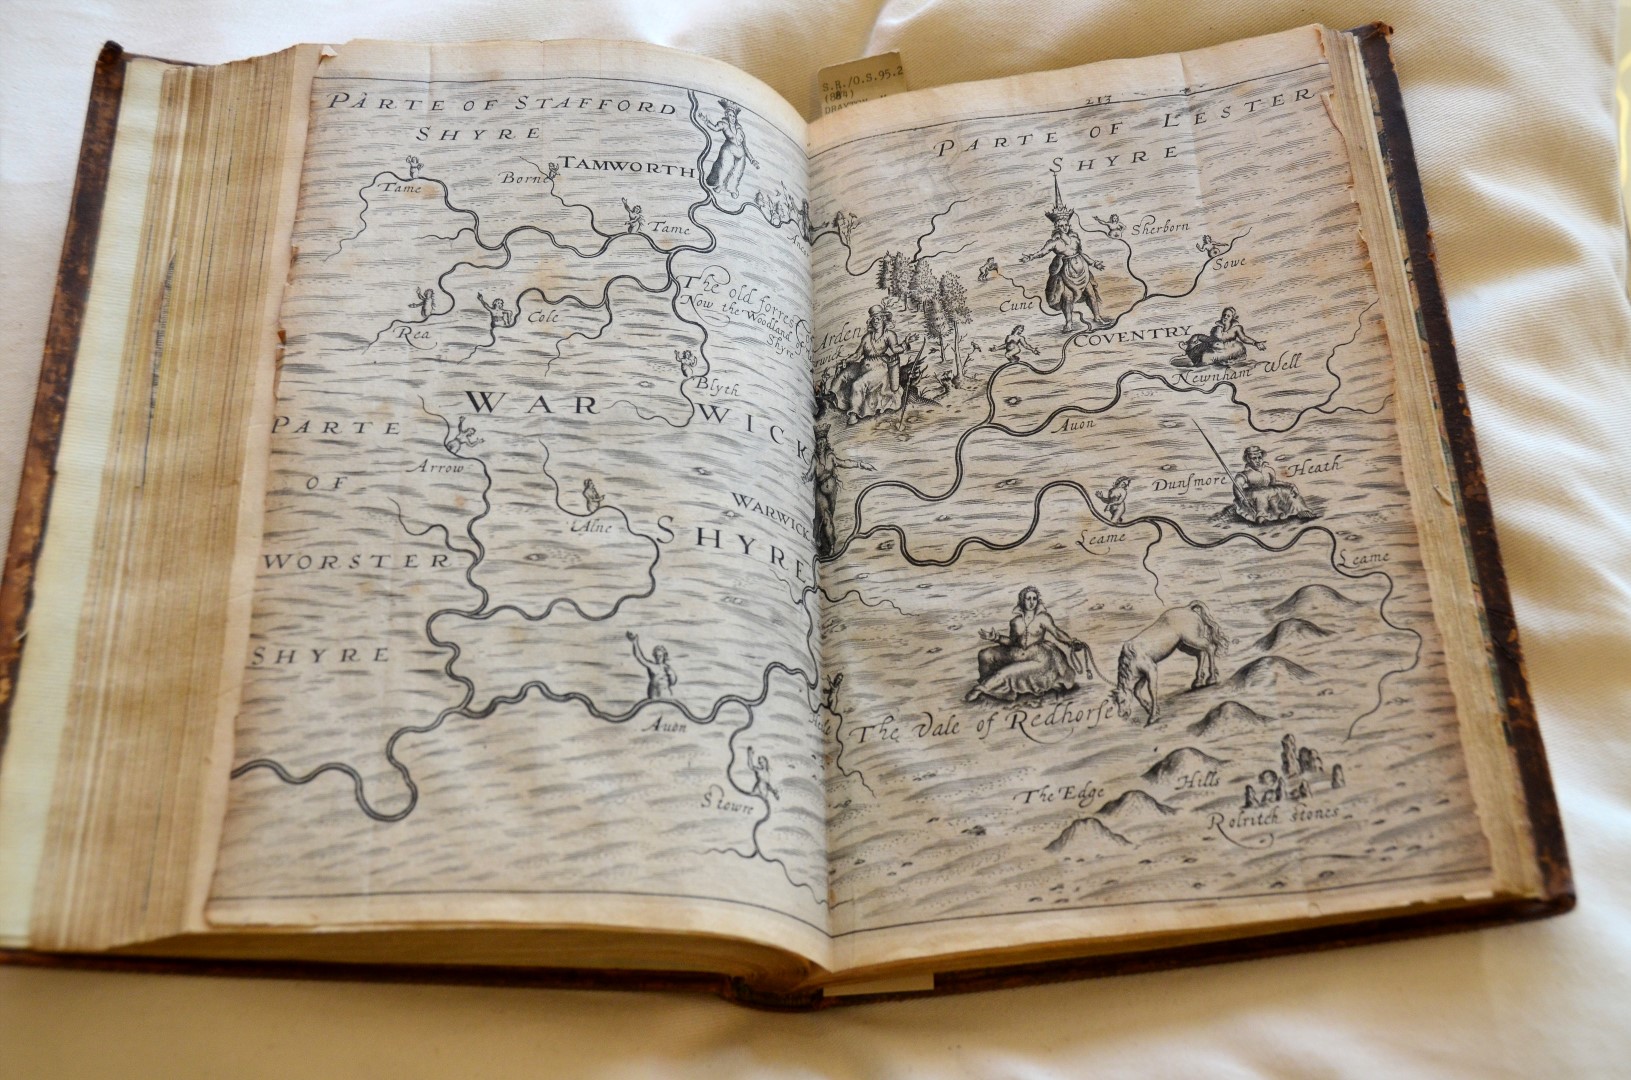 S.R./O.S.95.2
DRAYTON
213
PARTE OF STAFFORD
SHYRE
TAMWORTH
Tame
Borne
Tame
The old forrest
Now the Woodland of
Shyre
Rea
Cole
Blyth
WAR WICK
PARTE
Arrow
OF
Alne
WARWICK
SHYRE
WORSTER
SHYRE
Auon
Stowre
PARTE OF LESTER
SHYRE
Sherborn
Sowe
Cune
Arden
COVENTRY
Newnham Well
Auon
Heath
Dunsmore
Leame
Leame
The Vale of Redhorse
The Edge Hills
Rolritch stones